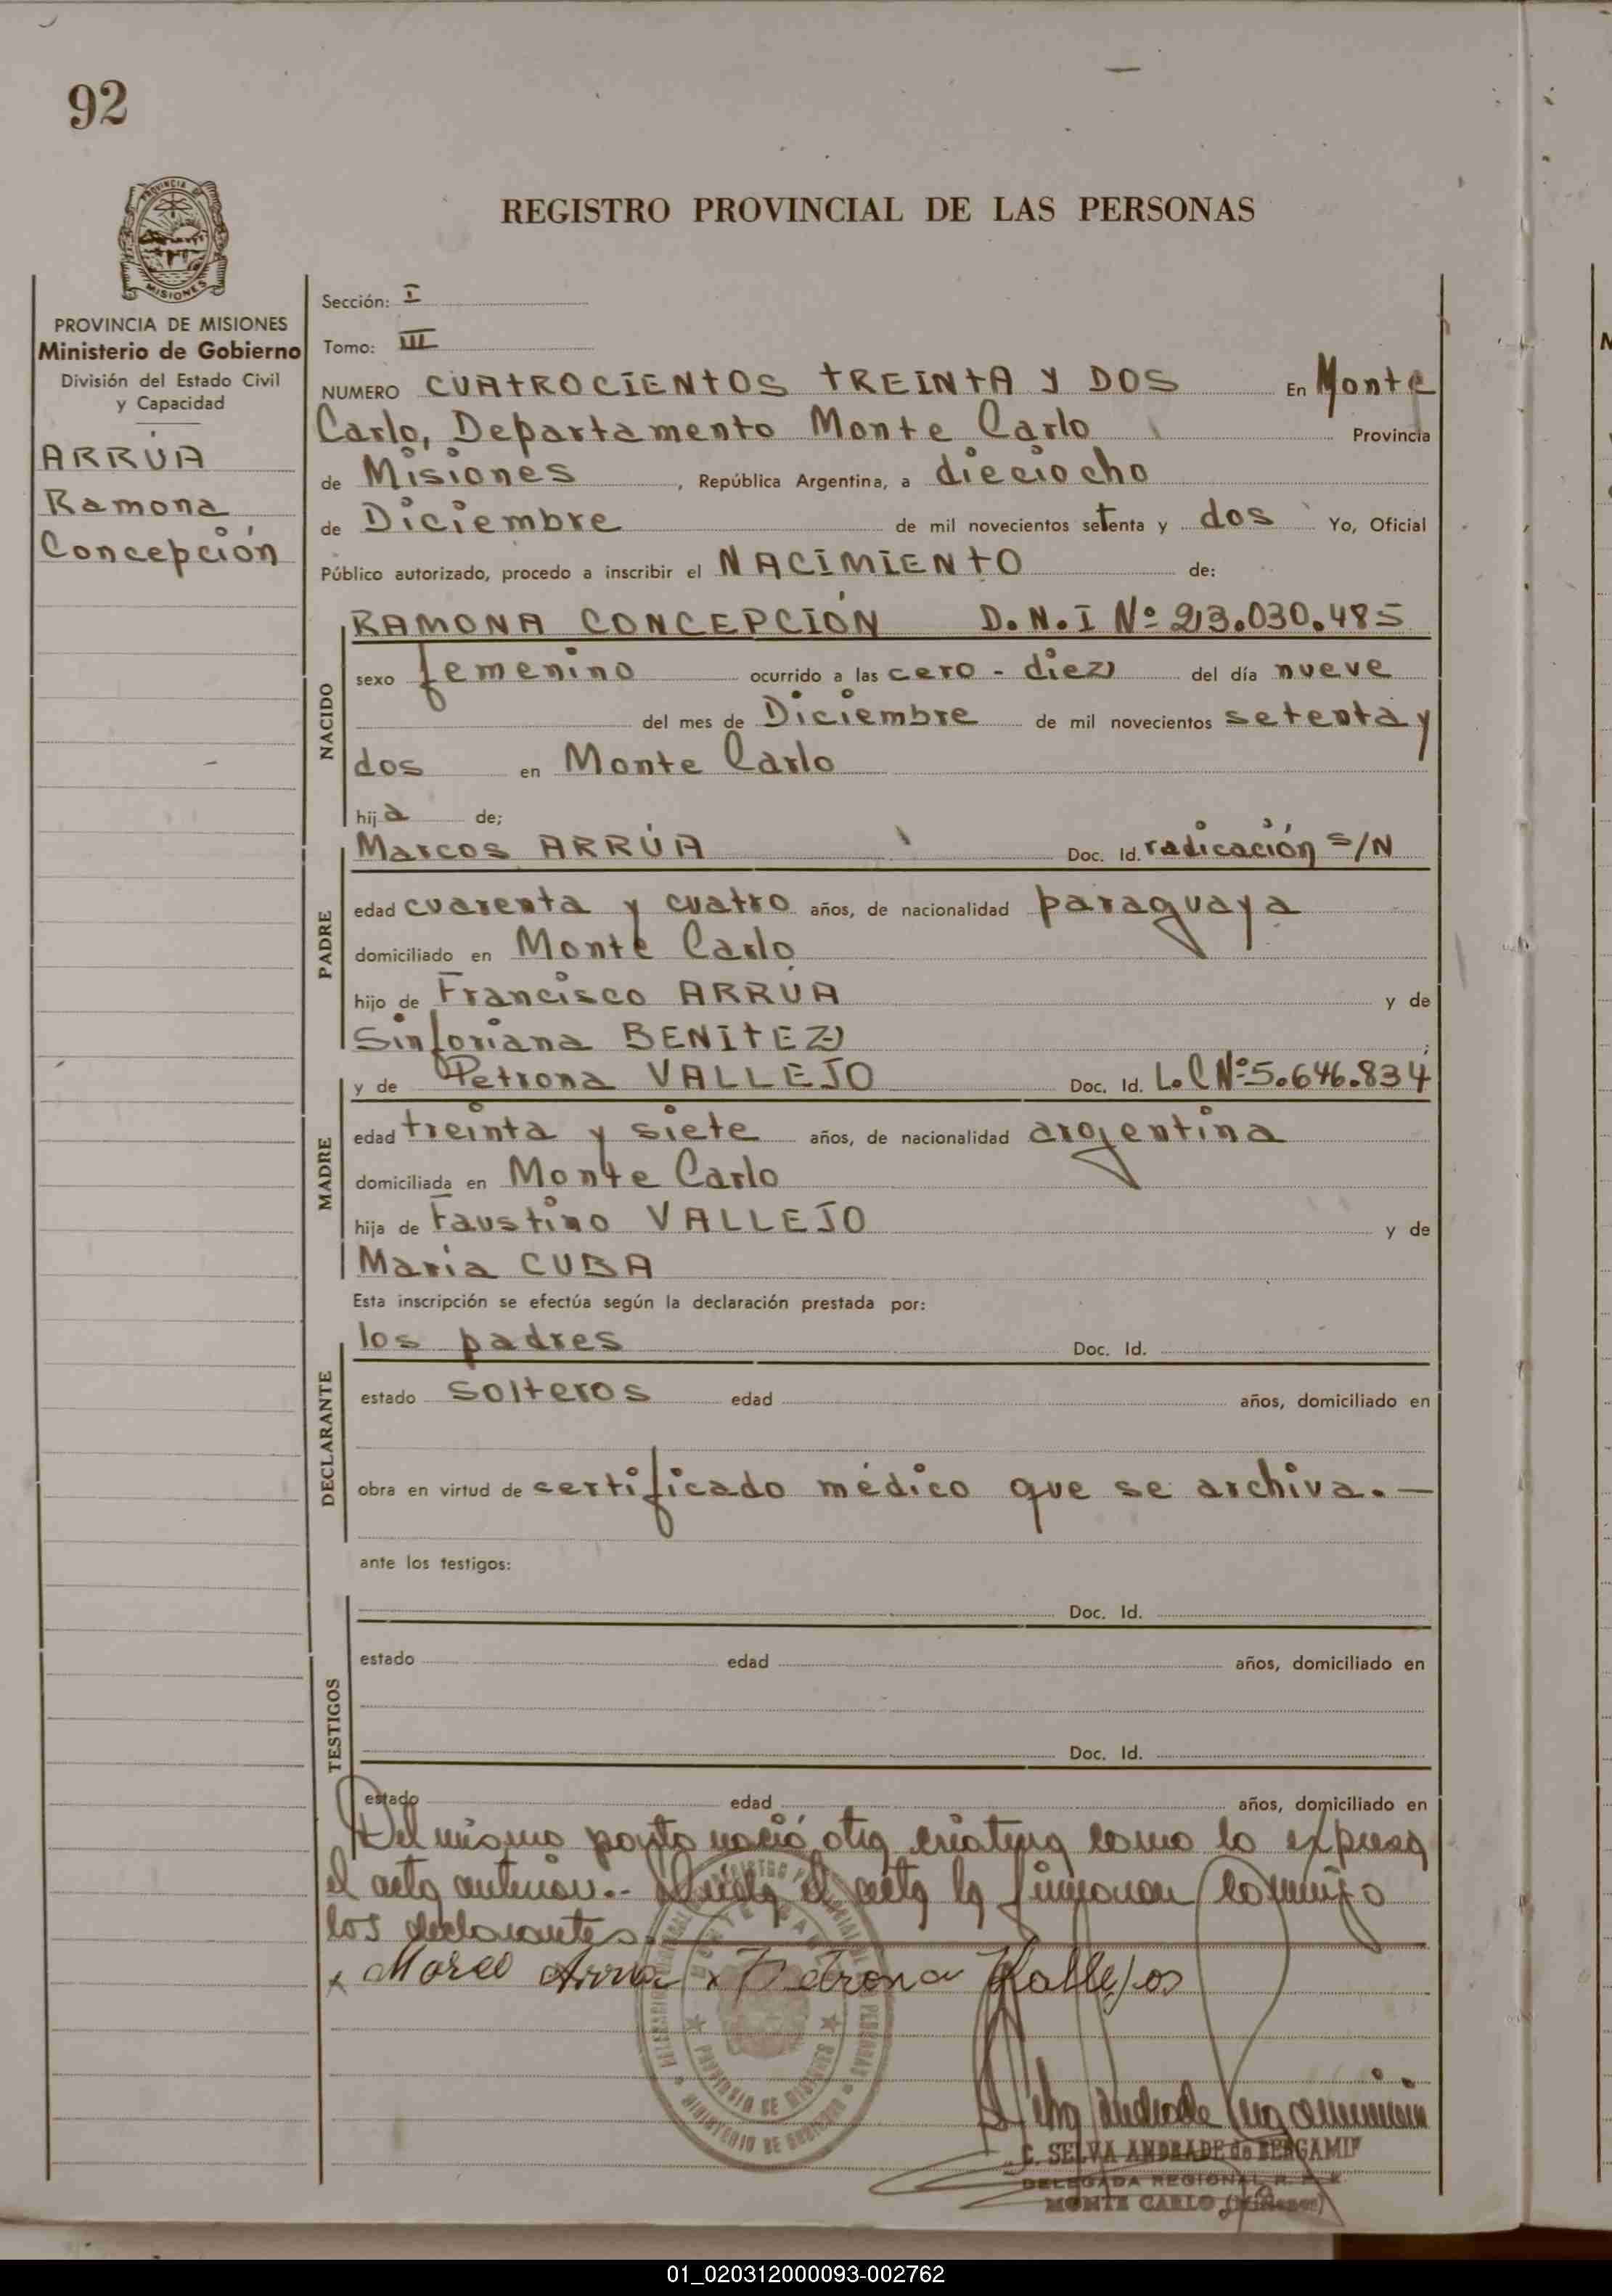 92
PROVINCIA DE
MISIONES
REGISTRO PROVINCIAL DE LAS PERSONAS
PROVINCIA DE MISIONES
Ministerio de Gobierno
División del Estado Civil
y Capacidad
ARRÚA
Ramona
Concepción
Sección: I
Tomo: III
NUMERO CUATROCIENTOS TREINTA Y DOS En Monte
Carlo, Departamento Monte Carlo Provincia
de Misiones, República Argentina, a dieciocho
de Diciembre de mil novecientos setenta y dos Yo, Oficial
Público autorizado, procedo a inscribir el NACIMIENTO de:
NACIDO
RAMONA CONCEPCIÓN D.N.I Nº 23.030.485
sexo femenino ocurrido a las cero - diez del día nueve
del mes de Diciembre de mil novecientos setenta y
dos en Monte Carlo
hija de;
PADRE
Marcos ARRÚA Doc. Id. radicación s/N
edad cuarenta y cuatro años, de nacionalidad paraguaya
domiciliado en Monte Carlo
hijo de Francisco ARRÚA y de
Sinforiana BENITEZ ;
MADRE
y de Petrona VALLEJO Doc. Id. L.C Nº 5.646.834
edad treinta y siete años, de nacionalidad argentina
domiciliada en Monte Carlo
hija de Faustino VALLEJO y de
María CUBA
Esta inscripción se efectúa según la declaración prestada por:
DECLARANTE
los padres Doc. Id.
estado solteros edad años, domiciliado en
obra en virtud de certificado médico que se archiva.—
ante los testigos:
TESTIGOS
Doc. Id.
estado edad años, domiciliado en
Doc. Id.
estado edad años, domiciliado en
Del mismo parto nació otra criatura como lo expresa
el acta anterior.- el acta la firmaron conmigo
los declarantes.
x Marco Arrua x Petrona Vallejos
MONTE CARLO
PROVINCIA DE MISIONES
MINISTERIO DE GOBIERNO
C. SELVA ANDRADE de BERGAMIN
DELEGADA REGIONAL R. P. P.
MONTE CARLO (Misiones)
01_020312000093-002762